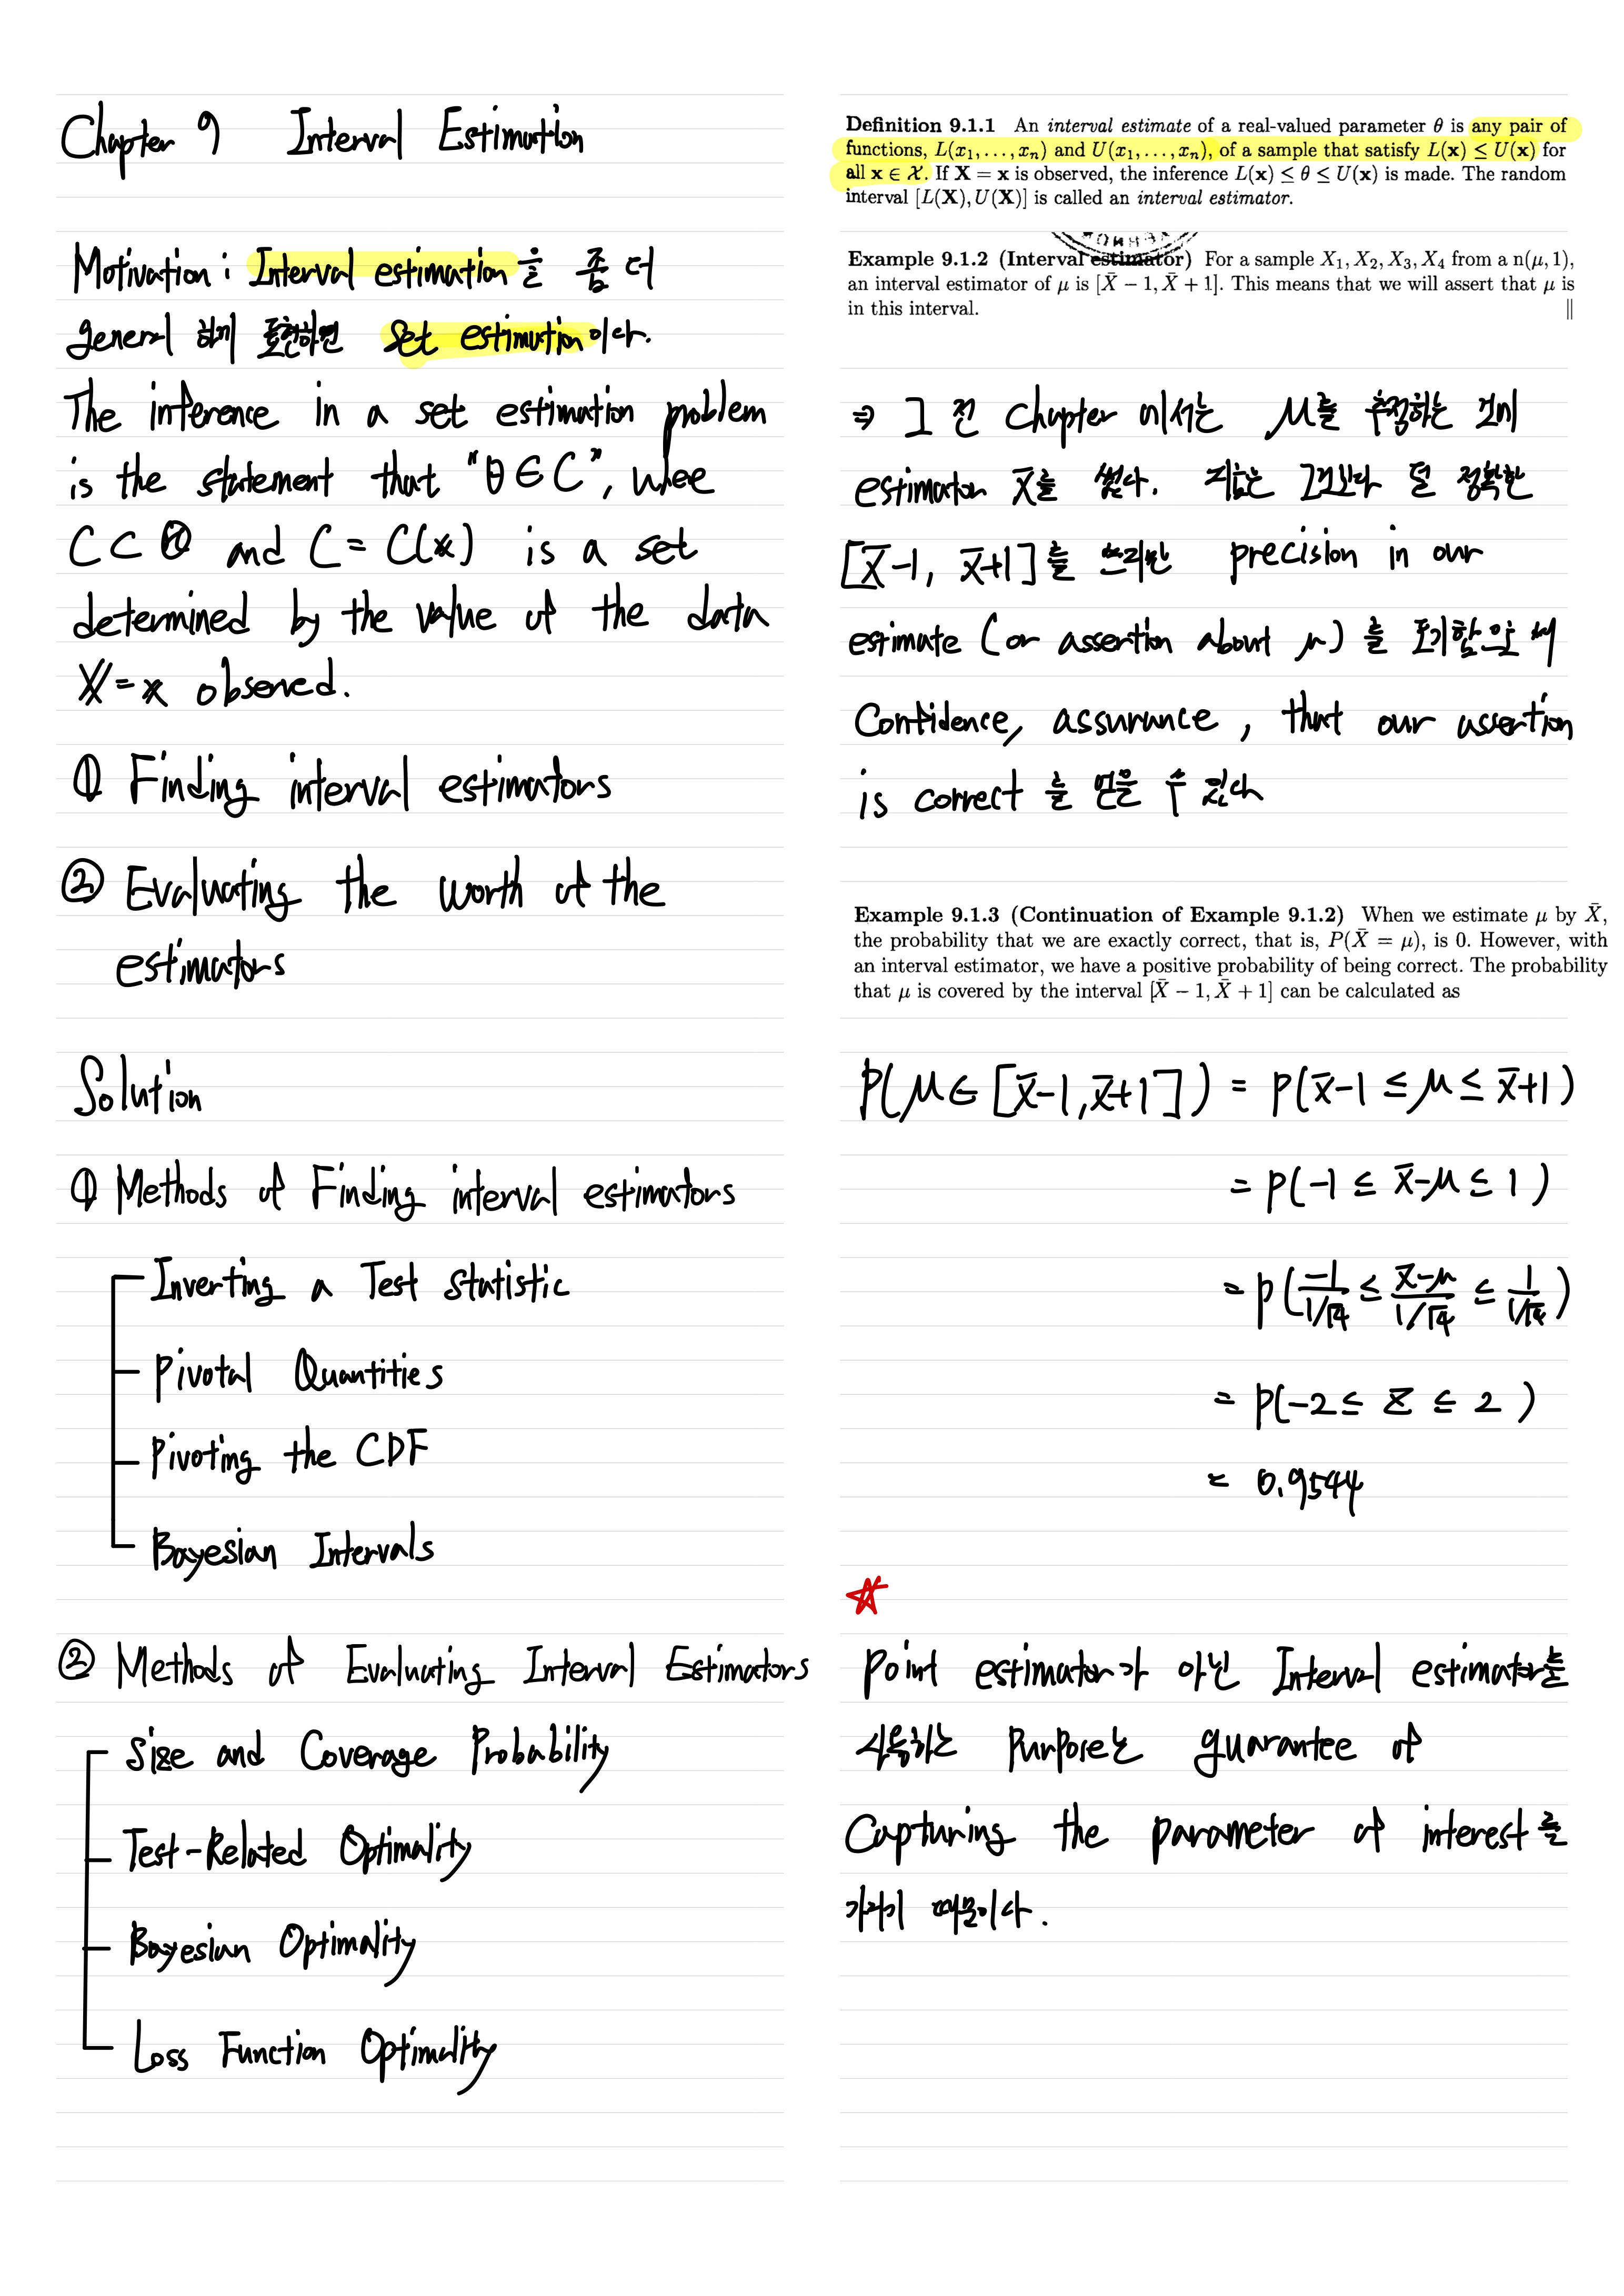 Chapter 9 Interval Estimation
Motivation : Interval estimation을 좀 더
general 하게 표현하면 Set estimation이다.
The inference in a set estimation problem
is the statement that "θ∈C", whee
C⊂Θ and C = C(x) is a set
determined by the value of the data
X=x observed.
① Finding interval estimators
② Evaluating the worth of the
estimators
Solution
① Methods of Finding interval estimators
Inverting a Test Statistic
Pivotal Quantities
Pivoting the CDF
Bayesian Intervals
② Methods of Evaluating Interval Estimators
Size and Coverage Probability
Test-Related Optimality
Bayesian Optimality
Loss Function Optimality
Definition 9.1.1 An interval estimate of a real-valued parameter θ is any pair of
functions, L(x₁,...,xₙ) and U(x₁,...,xₙ), of a sample that satisfy L(x) ≤ U(x) for
all x ∈ 𝒳. If X = x is observed, the inference L(x) ≤ θ ≤ U(x) is made. The random
interval [L(X), U(X)] is called an interval estimator.
Example 9.1.2 (Interval estimator) For a sample X₁, X₂, X₃, X₄ from a n(μ, 1),
an interval estimator of μ is [X̄ − 1, X̄ + 1]. This means that we will assert that μ is
in this interval. ||
⇒ 그 전 chapter 에서는 μ를 추정하는 것에
estimator X̄를 썼다. 지금은 그것보다 덜 정확한
[X̄-1, X̄+1]를 쓰지만 precision in our
estimate (or assertion about μ) 를 포기함으로써
Confidence, assurance, that our assertion
is correct 를 얻을 수 있다
Example 9.1.3 (Continuation of Example 9.1.2) When we estimate μ by X̄,
the probability that we are exactly correct, that is, P(X̄ = μ), is 0. However, with
an interval estimator, we have a positive probability of being correct. The probability
that μ is covered by the interval [X̄ − 1, X̄ + 1] can be calculated as
P(μ∈[X̄-1, X̄+1]) = P(X̄-1 ≤ μ ≤ X̄+1)
= P(-1 ≤ X̄-μ ≤ 1)
= P(-1/(1/√4) ≤ (X̄-μ)/(1/√4) ≤ 1/(1/√4))
= P(-2 ≤ Z ≤ 2)
= 0.9544
☆
Point estimator가 아닌 Interval estimator를
사용하는 Purpose는 guarantee of
Capturing the parameter of interest를
가지기 때문이다.